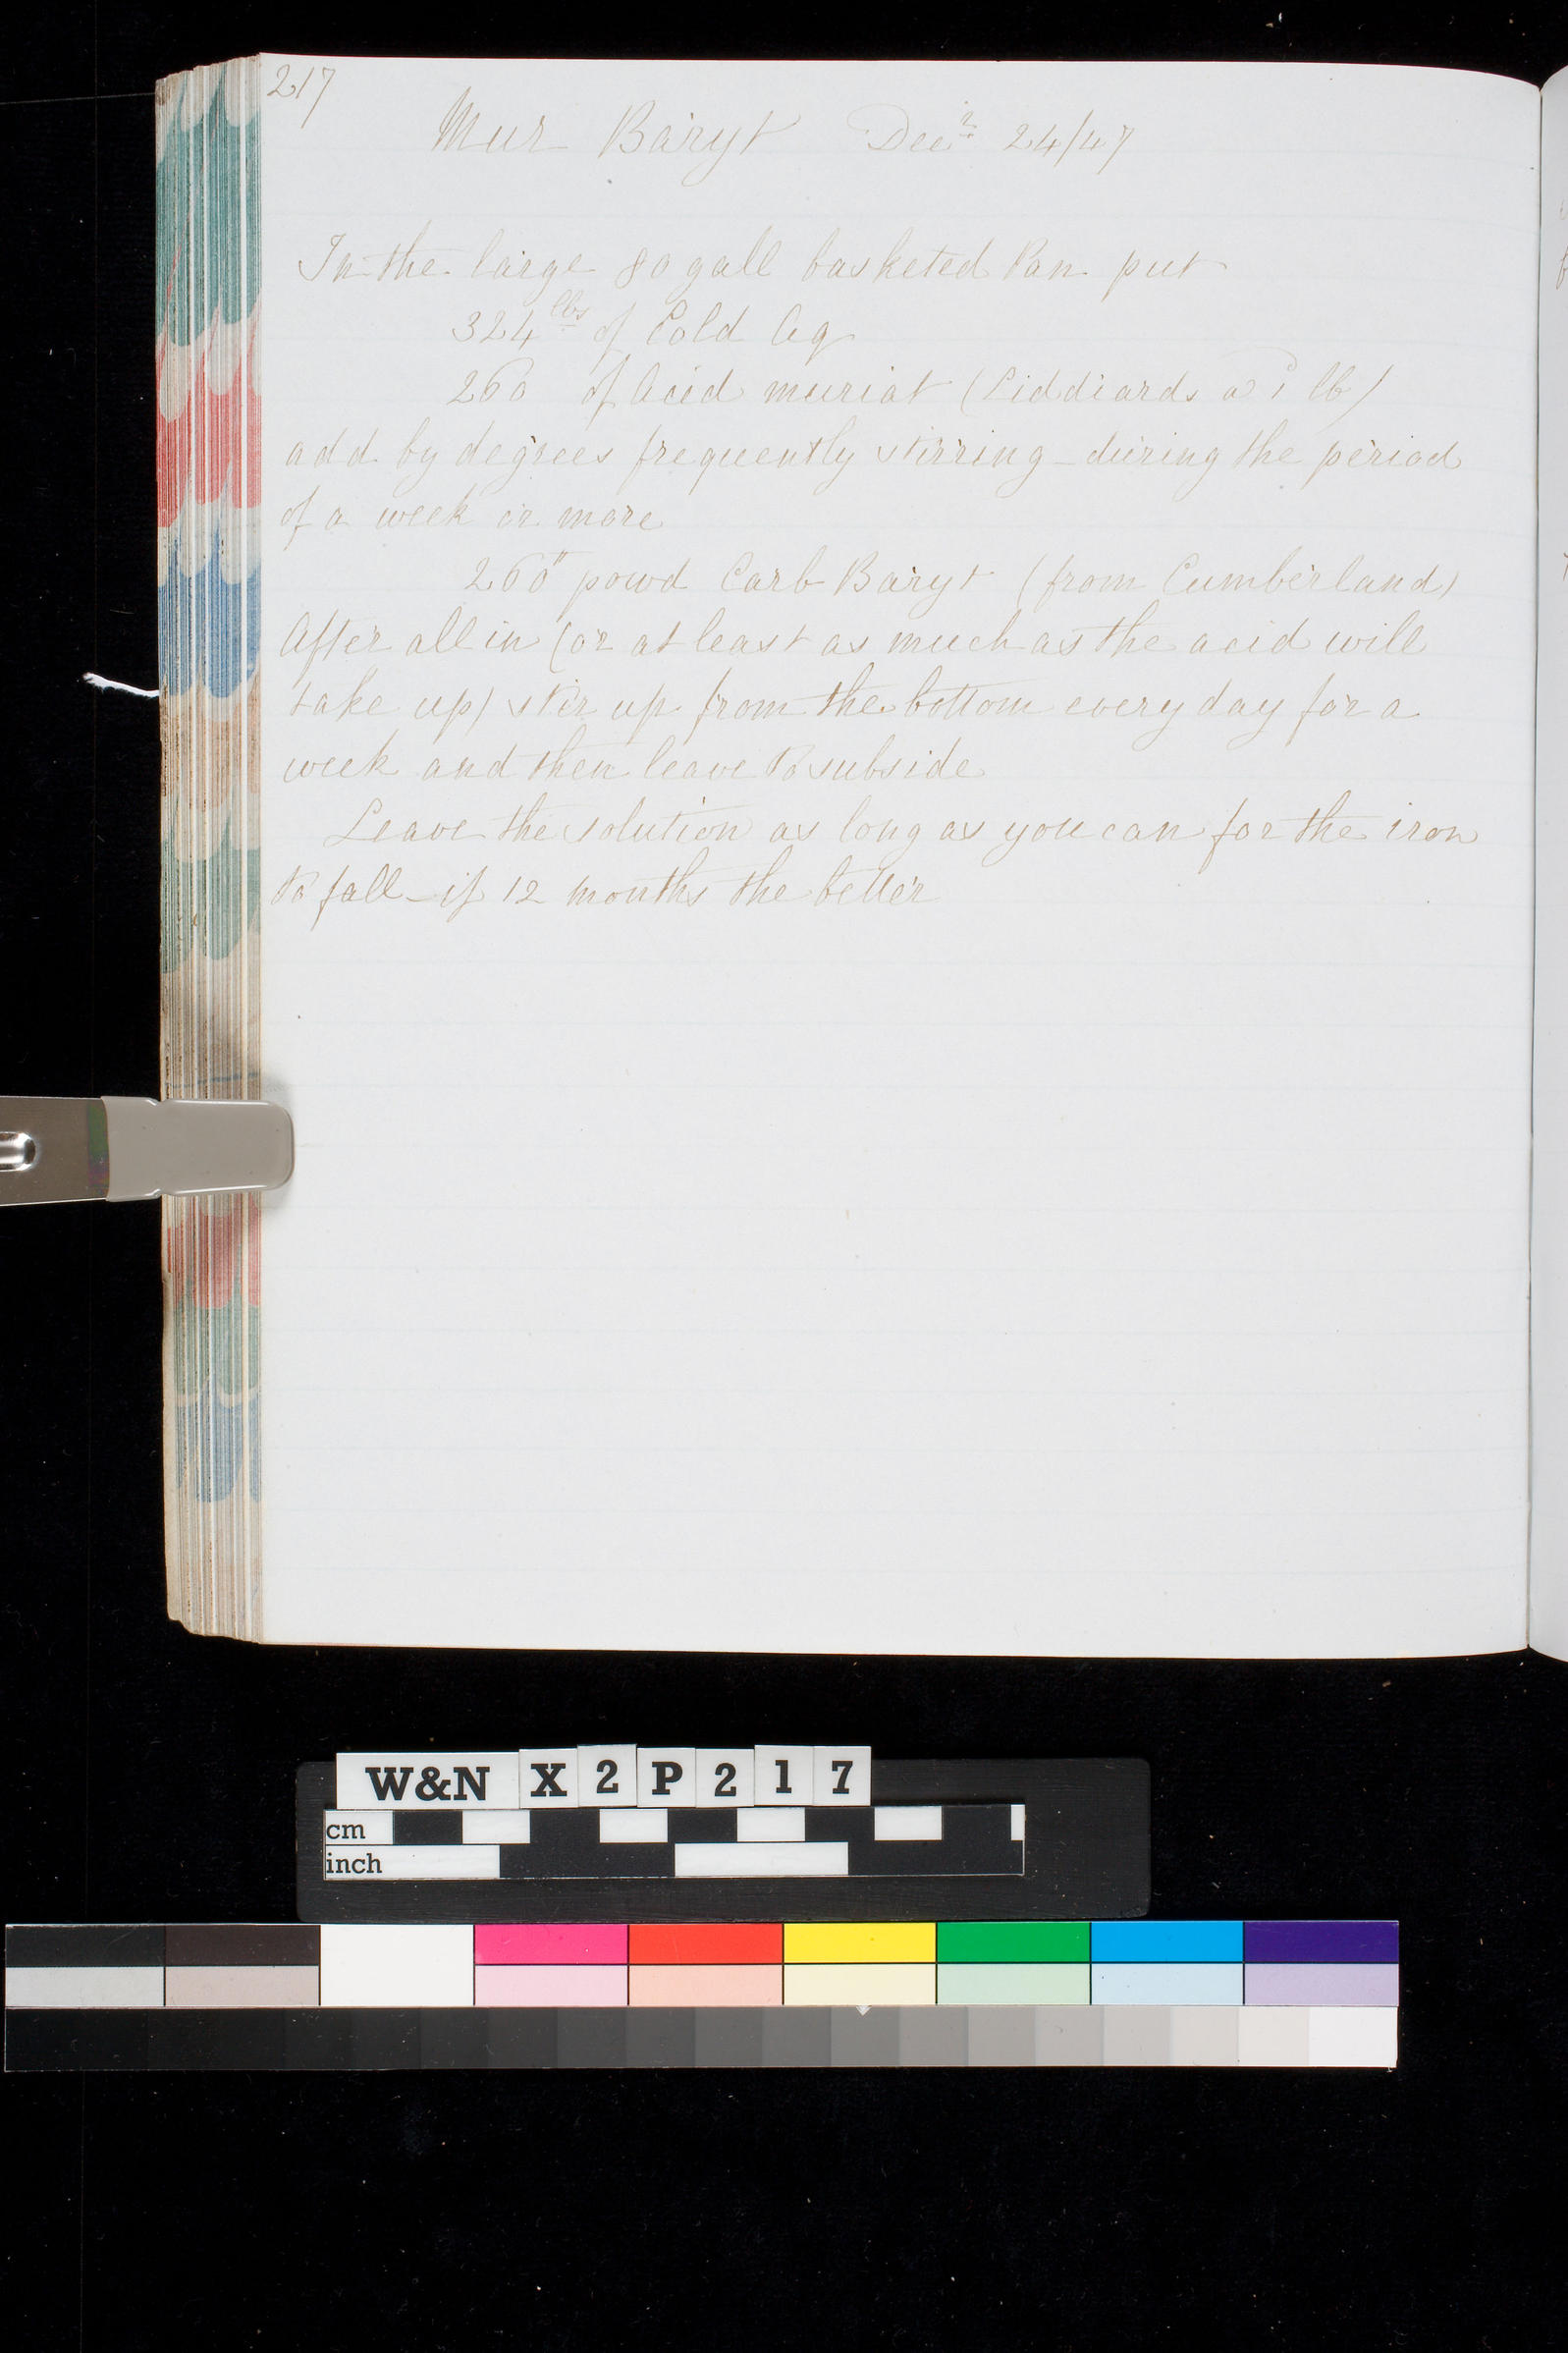 217
Mur Baryt Decr 24/47
In the large 80 gall basketed Pan put
324 lbs of Cold Aq
260 of Acid muriat (Liddiards lb)
add by degrees frequently stirring – during the period
of a week or more
260" powd Carb Baryt (from Cumberland)
After all in (or at least as much as the acid will
take up) stir up from the bottom every day for a
week and then leave to subside
Leave the solution as long as you can for the iron
to fall – if 12 months the better
W&N X2P217
cm
inch